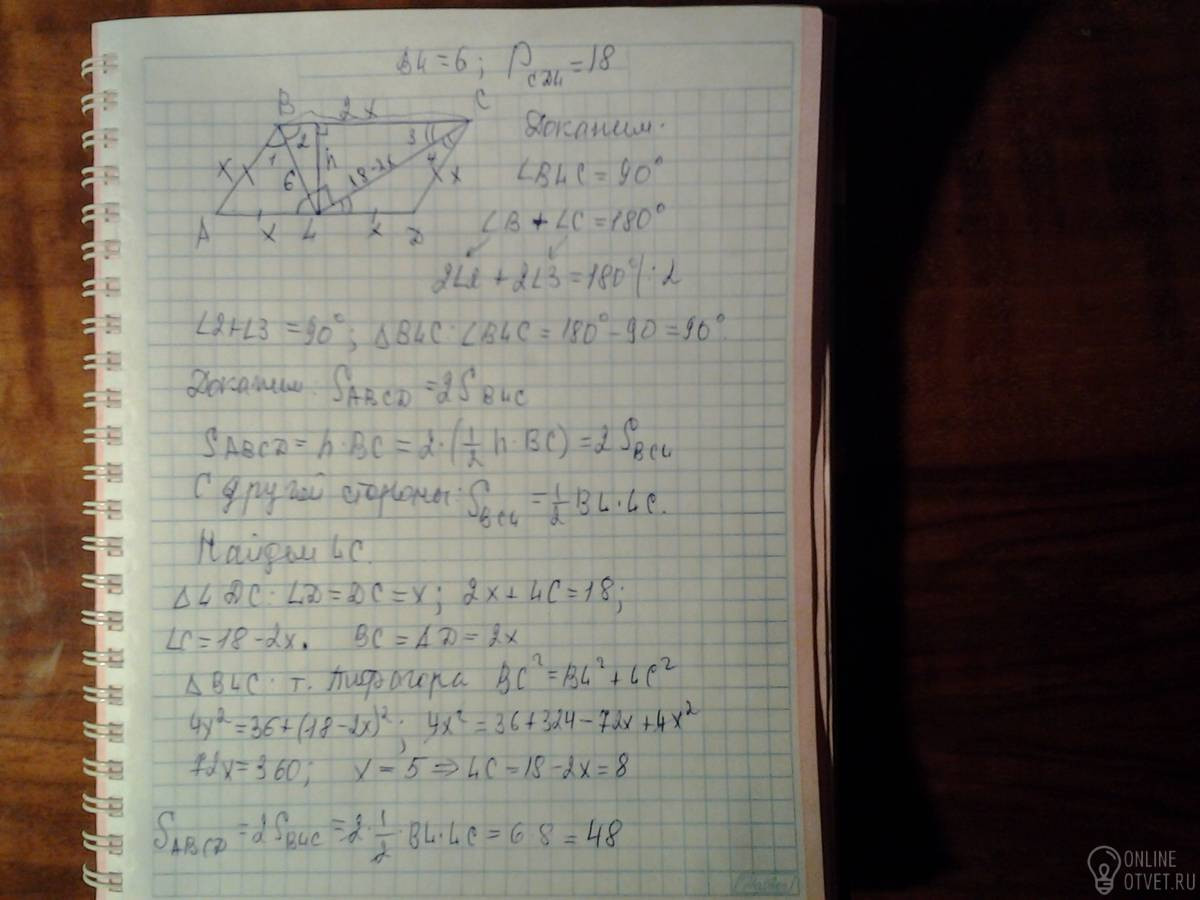 BL=6; P_CDL=18
B 2x C
x 1 2 6 h 18-2x 3 4 x
A x L x D
Докажем:
∠BLC=90°
∠B+∠C=180°
2∠2+2∠3=180° |:2
∠2+∠3=90°; △BLC: ∠BLC=180°-90=90°.
Докажем: S_ABCD=2S_BLC
S_ABCD=h·BC=2·(1/2 h·BC)=2S_BCL
С другой стороны: S_BCL=1/2 BL·LC.
Найдём LC.
△LDC: LD=DC=x; 2x+LC=18;
LC=18-2x. BC=AD=2x
△BLC: т. Пифагора BC²=BL²+LC²
4x²=36+(18-2x)²; 4x²=36+324-72x+4x²
72x=360; x=5⇒LC=18-2x=8
S_ABCD=2S_BLC=2·1/2·BL·LC=6·8=48
ONLINE
OTVET.RU